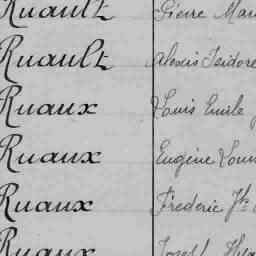 Ruault Pierre Mari
Ruault Alexis Isidore
Ruaux Louis Emile
Ruaux Eugène Loui
Ruaux Frederic Jh
Ruaux Joseph